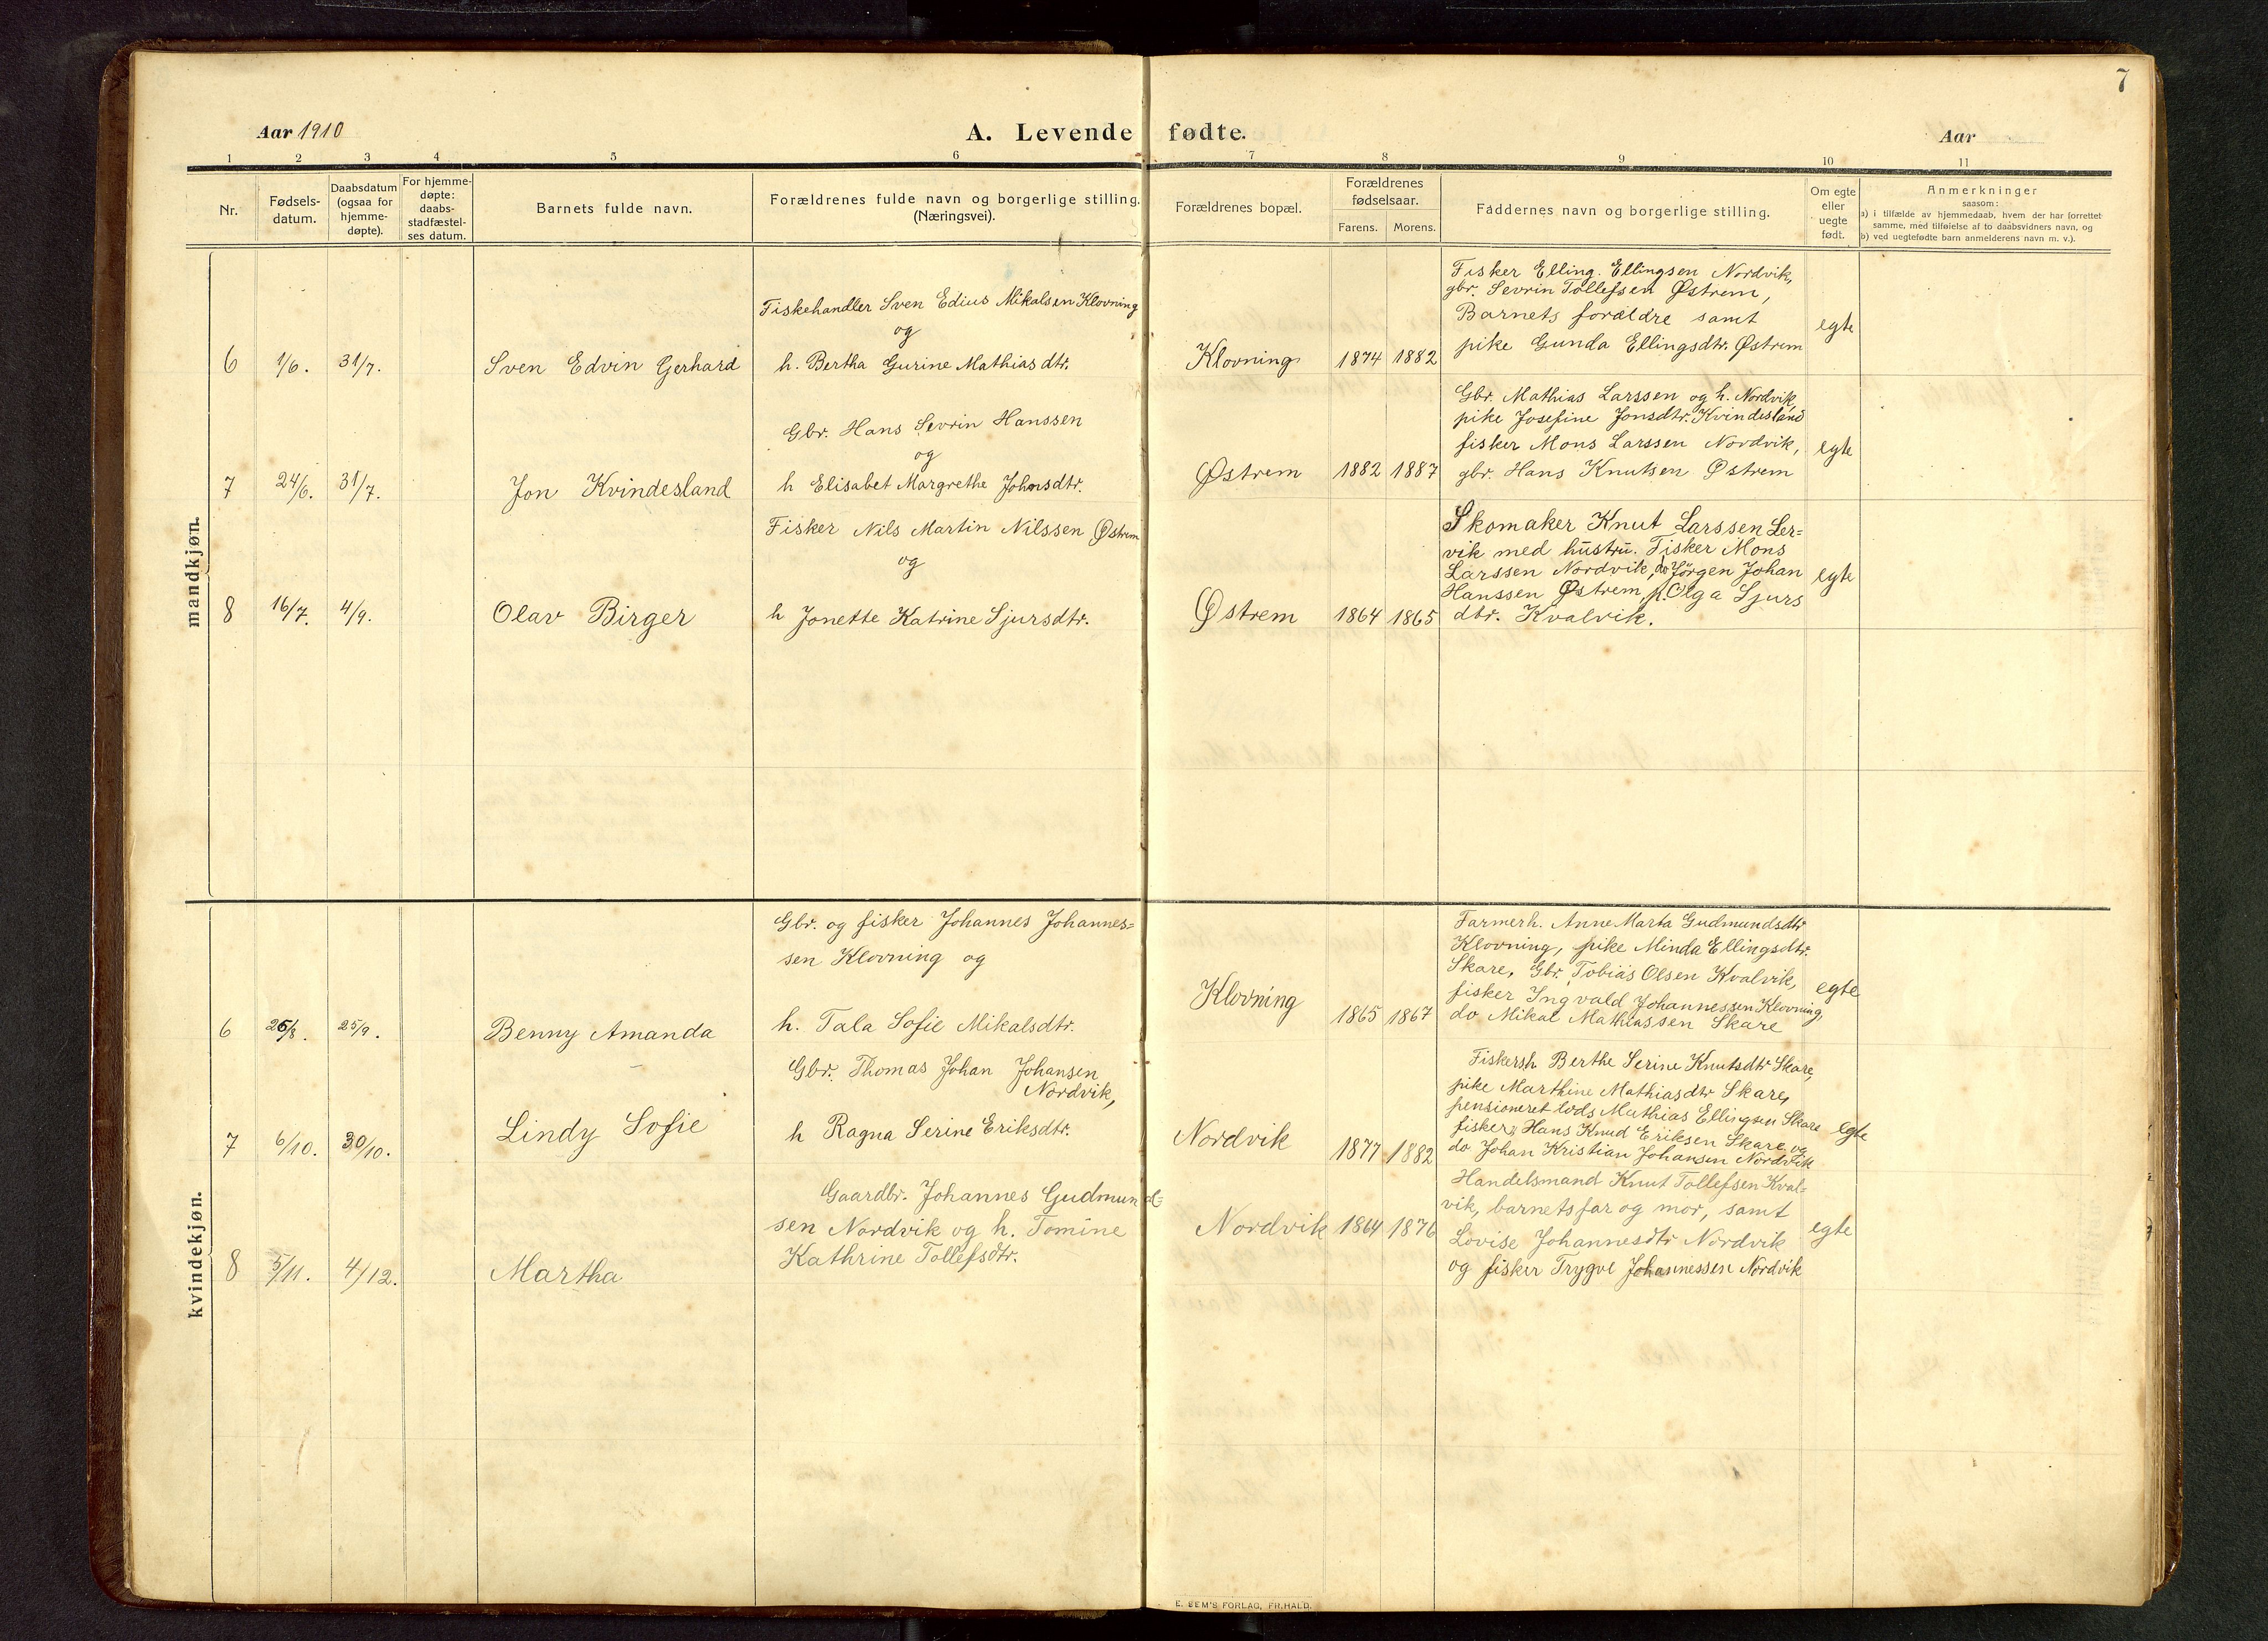 7
Aar 1910
A. Levende fødte.
Aar
1 2 3 4 5 6 7 8 9 10 11
Nr.
Fødsels-
datum.
Daabsdatum
(ogsaa for
hjemme-
døpte).
For hjemme-
døpte:
daabs-
stadfæstel-
ses datum.
Barnets fulde navn.
Forældrenes fulde navn og borgerlige stilling.
(Næringsvei).
Forældrenes bopæl.
Forældrenes
fødselsaar.
Farens. Morens.
Faddernes navn og borgerlige stilling.
Om egte
eller
uegte
født.
Anmerkninger
saasom:
a) i tilfælde av hjemmedaab, hvem der har forrettet
samme, med tilføielse af to daabsvidners navn, og
b) ved uegtefødte barn anmelderens navn m. v.).
mandkjøn.
6 1/6. 31/7.
Sven Edvin Gerhard
Fiskehandler Sven Edius Mikalsen Klovning
og
h. Bertha Gurine Mathiasdtr.
Klovning 1874 1882
Fisker Elling. Ellingsen Nordvik,
gbr. Sevrin Tollefsen Østrem,
Barnets forældre samt
pike Gunda Ellingsdtr. Østrem
egte
7 24/6. 31/7.
Jon Kvindesland
Gbr. Hans Sevrin Hanssen
og
h Elisabet Margrethe Johnsdtr.
Østrem 1882 1887
Gbr. Mathias Larssen og h. Nordvik,
pike Josefine Jonsdtr. Kvindesland
fisker Mons Larssen Nordvik,
gbr. Hans Knutsen Østrem
egte
8 16/7. 4/9.
Olav Birger
Fisker Nils Martin Nilssen Østrem
og
h Jonette Katrine Sjursdtr.
Østrem 1864 1865
Skomaker Knut Larssen Ler=
vik med hustru. Fisker Mons
Larssen Nordvik, do Jørgen Johan
Hanssen Østrem, p. Olga Sjurs
dtr. Kvalvik.
egte
kvindekjøn.
6 26/8. 25/9.
Benny Amanda
Gbr. og fisker Johannes Johannes=
sen Klovning og
h. Tala Sofie Mikalsdtr.
Klovning 1865 1867
Farmerh. Anne Marta Gudmundsdtr
Klovning, pike Minda Ellingsdtr.
Skare, Gbr. Tobias Olsen Kvalvik,
fisker Ingvald Johannessen Klovning,
do Mikal Mathiassen Skare
egte
7 6/10. 30/10.
Lindy Sofie
Gbr. Thomas Johan Johansen
Nordvik,
h Ragna Serine Eriksdtr.
Nordvik 1877 1882
Fiskersh Berthe Serine Knutsdtr Skare,
pike Marthine Mathiasdtr Skare,
pensioneret lods Mathias Ellingsen Skare
fisker Hans Knud Eriksen Skare og
do Johan Kristian Johansen Nordvik
egte
8 5/11. 4/12.
Martha
Gaardbr. Johannes Gudmund=
sen Nordvik og h. Tomine
Kathrine Tollefsdtr.
Nordvik 1864 1876
Handelsmand Knut Tollefsen Kval=
vik, barnets far og mor, samt
Lovise Johannesdtr Nordvik
og fisker Trygve Johannessen Nordvik
egte
E. SEM'S FORLAG, FR.HALD.